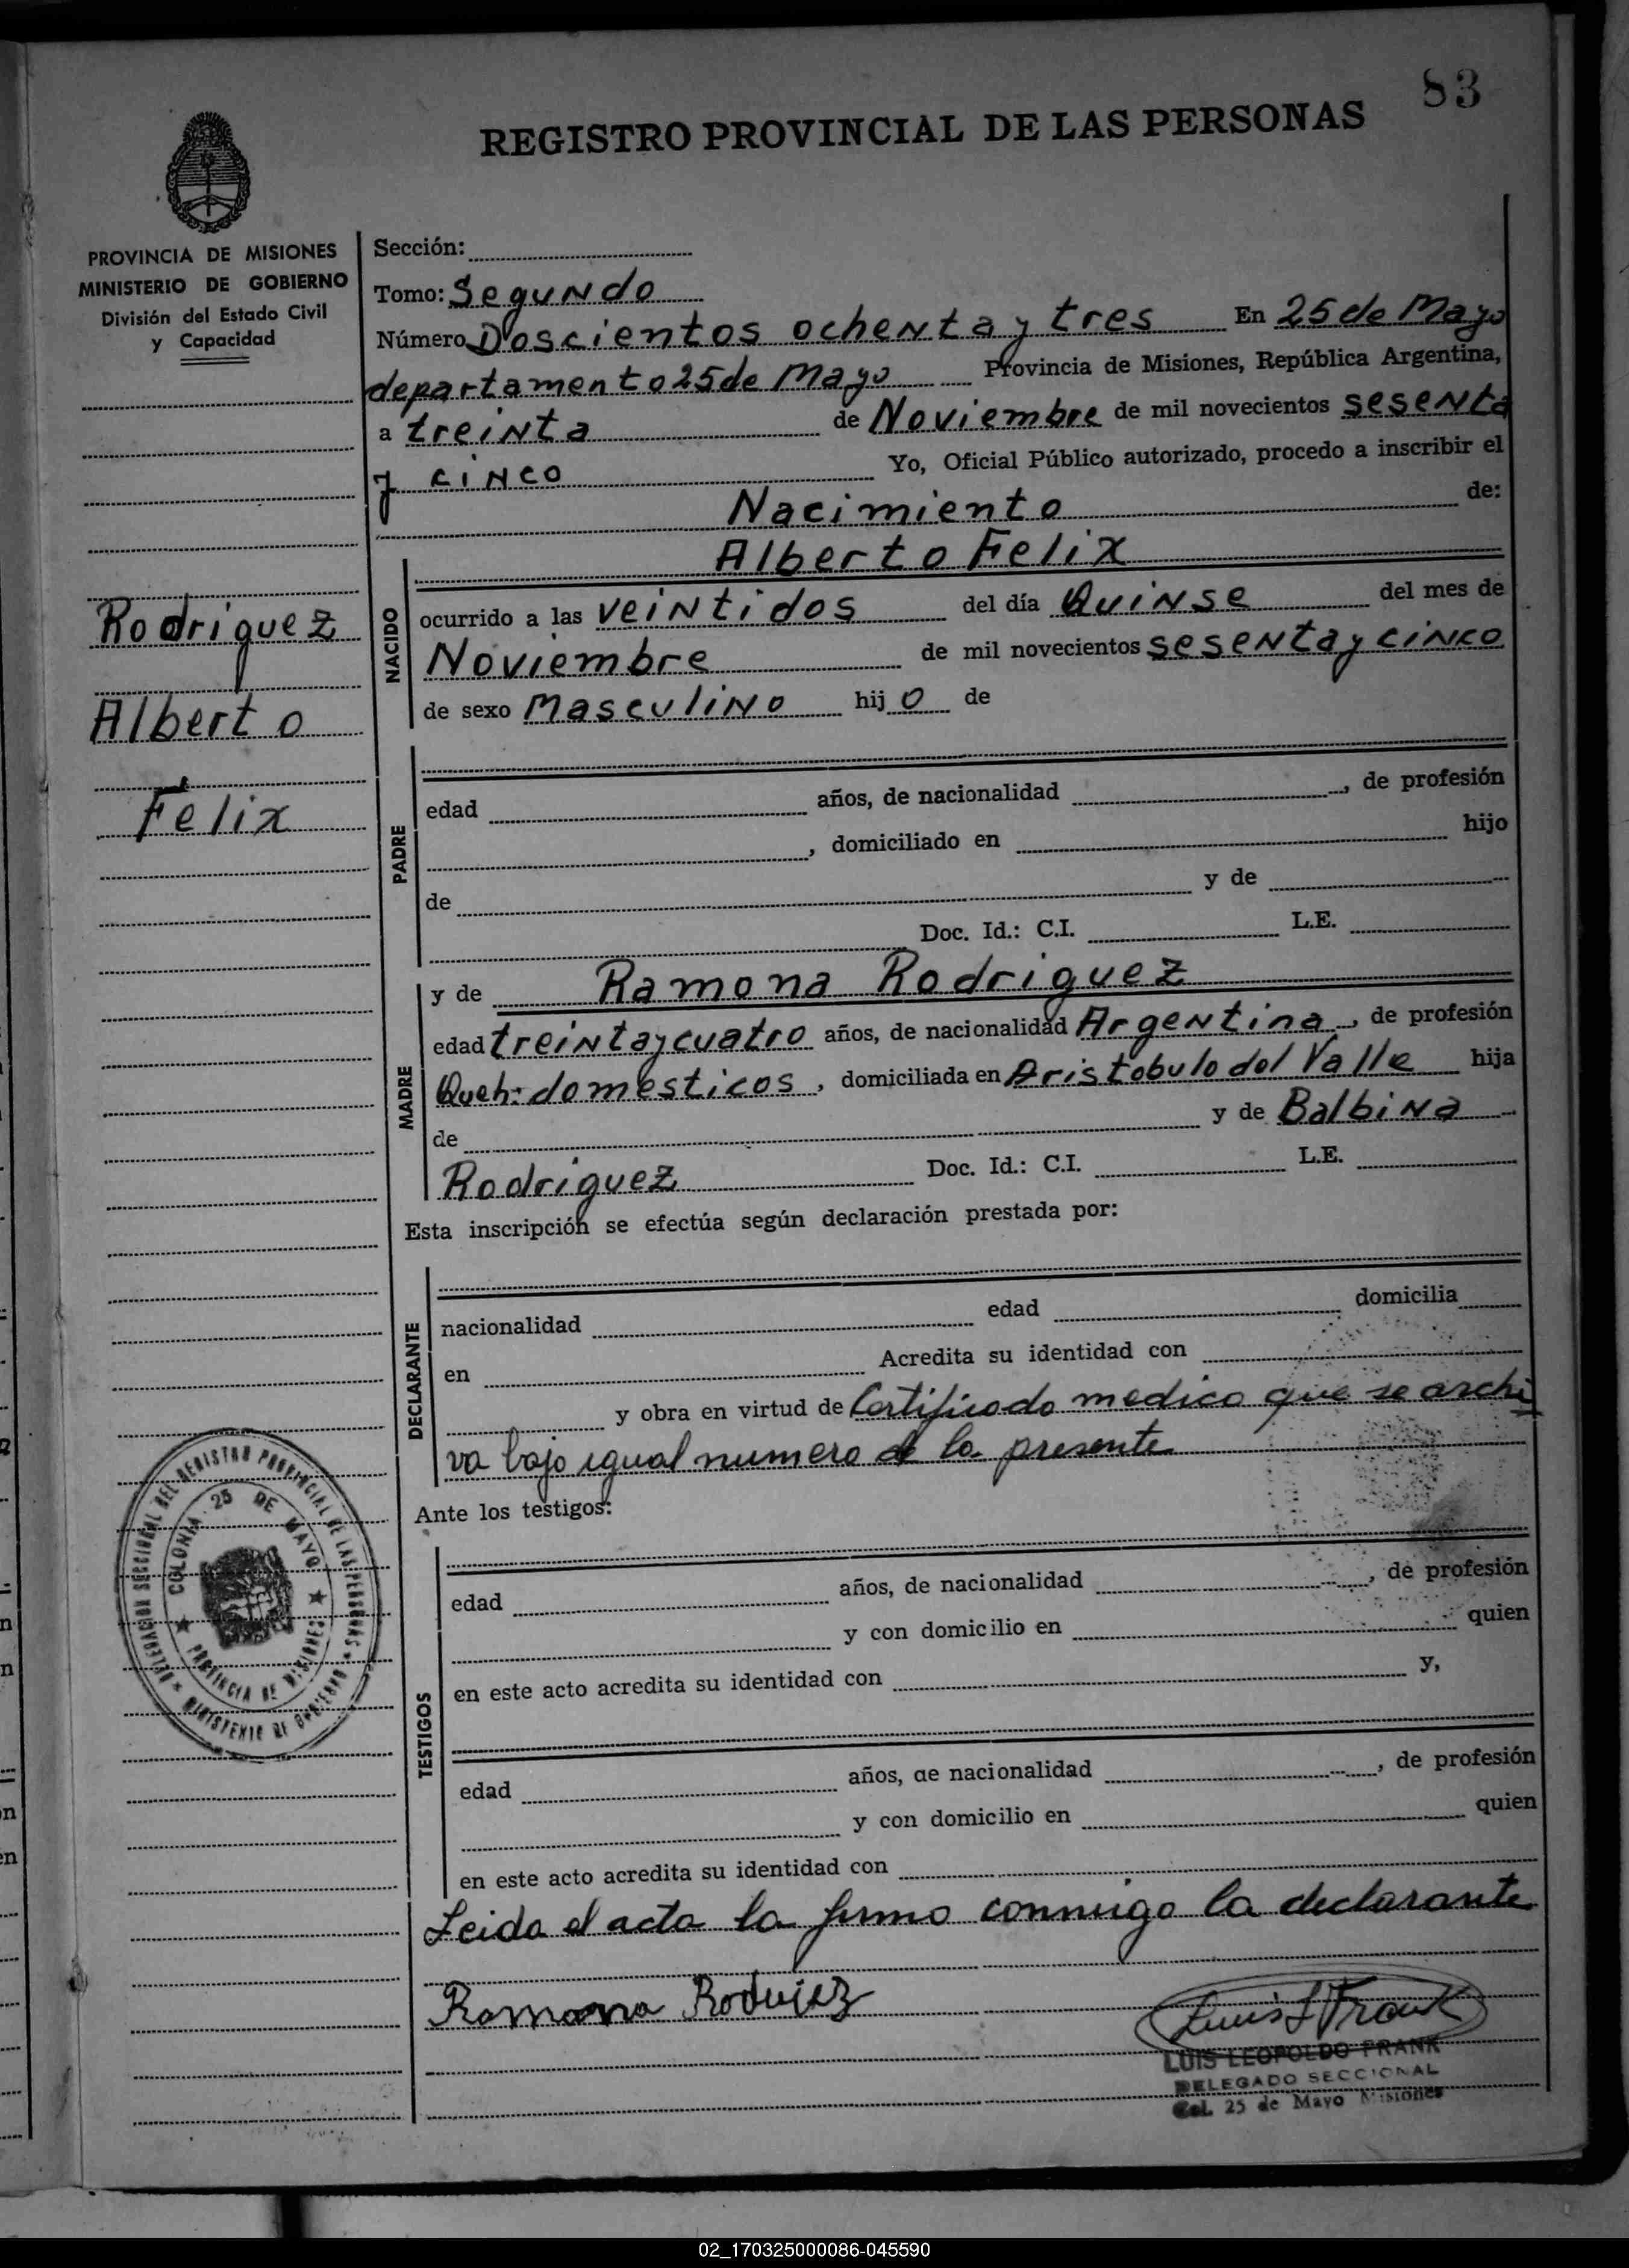 83
REGISTRO PROVINCIAL DE LAS PERSONAS
PROVINCIA DE MISIONES
MINISTERIO DE GOBIERNO
División del Estado Civil
y Capacidad
Rodriguez
Alberto
Felix
Sección:
Tomo: Segundo
Número Doscientos ochenta y tres En 25 de Mayo
departamento 25 de Mayo Provincia de Misiones, República Argentina,
a treinta de Noviembre de mil novecientos sesenta
y cinco Yo, Oficial Público autorizado, procedo a inscribir el
Nacimiento de:
Alberto Felix
NACIDO
ocurrido a las veintidos del día Quinse del mes de
Noviembre de mil novecientos sesenta y cinco
de sexo Masculino hijo de
PADRE
edad años, de nacionalidad , de profesión
, domiciliado en hijo
de y de
Doc. Id.: C.I. L.E.
MADRE
y de Ramona Rodriguez
edad treinta y cuatro años, de nacionalidad Argentina, de profesión
Queh: domesticos, domiciliada en Aristobulo del Valle hija
de y de Balbina
Rodriguez Doc. Id.: C.I. L.E.
Esta inscripción se efectúa según declaración prestada por:
DECLARANTE
nacionalidad edad domicilia
en Acredita su identidad con
y obra en virtud de Certificado medico que se archi
va bajo igual numero de la presente
Ante los testigos:
TESTIGOS
edad años, de nacionalidad , de profesión
y con domicilio en quien
en este acto acredita su identidad con y,
edad años, de nacionalidad , de profesión
y con domicilio en quien
en este acto acredita su identidad con
Leida el acta la firmo conmigo la declarante
Ramona Rodriez
Luis L Frank
LUIS LEOPOLDO FRANK
DELEGADO SECCIONAL
Col. 25 de Mayo Misiones
DELEGACION SECCIONAL DEL REGISTRO PROVINCIAL DE LAS PERSONAS
MINISTERIO DE GOBIERNO
COLONIA 25 DE MAYO
PROVINCIA DE MISIONES
02_170325000086-045590